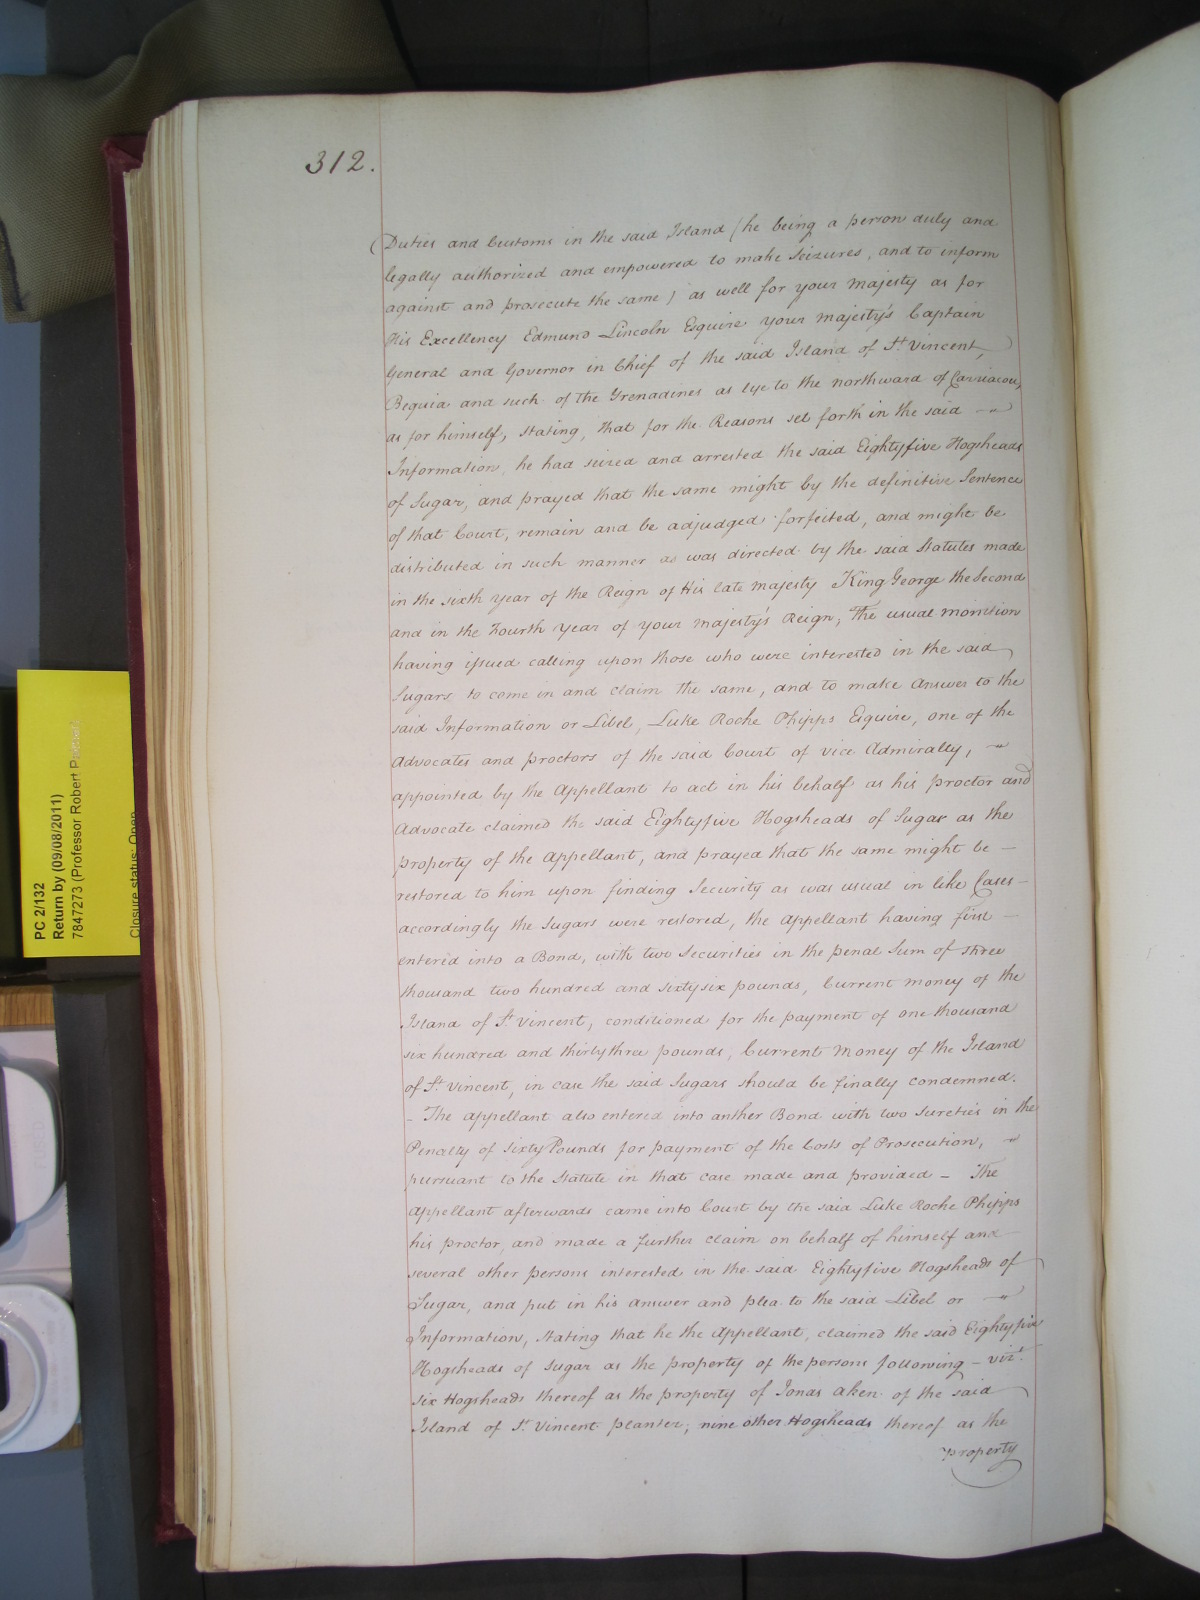 312.
Duties and Customs in the said Island (he being a person duly and
legally authorized and empowered to make Seizures, and to inform
against and prosecute the same) as well for your Majesty as for
His Excellency Edmund Lincoln Esquire your Majesty's Captain
General and Governor in Chief of the said Island of St. Vincent,
Bequia and such of the Grenadines as lye to the northward of Carriacou,
as for himself, stating, that for the Reasons set forth in the said
Information, he had seized and arrested the said Eightyfive Hogsheads
of Sugar, and prayed that the same might by the definitive Sentence
of that Court, remain and be adjudged forfeited, and might be
distributed in such manner as was directed by the said Statutes made
in the sixth year of the Reign of His late Majesty King George the Second
and in the Fourth year of your Majesty's Reign; The usual monition
having issued calling upon those who were interested in the said
Sugars to come in and claim the same, and to make Answer to the
said Information or Libel, Luke Roche Phipps Esquire, one of the
Advocates and proctors of the said Court of vice Admiralty,
appointed by the Appellant to act in his behalf as his proctor and
Advocate claimed the said Eightyfive Hogsheads of Sugar as the
property of the Appellant, and prayed that the same might be –
restored to him upon finding Security as was usual in like Cases –
accordingly the Sugars were restored, the Appellant having first –
entered into a Bond, with two Securities in the penal Sum of three
thousand two hundred and sixtysix pounds, Current money of the
Island of St. Vincent, conditioned for the payment of one thousand
six hundred and thirtythree pounds, Current Money of the Island
of St. Vincent, in case the said Sugars should be finally condemned.
– The Appellant also entered into anther Bond with two Sureties in the
Penalty of Sixty Pounds for payment of the Costs of Prosecution,
pursuant to the Statute in that case made and provided – The
Appellant afterwards came into Court by the said Luke Roche Phipps
his proctor, and made a further claim on behalf of himself and
several other persons interested in the said Eightyfive Hogsheads of
Sugar, and put in his answer and plea to the said Libel or
Information, stating that he the Appellant, claimed the said Eightyfive
Hogsheads of Sugar as the property of the persons following – vizt.
six Hogsheads thereof as the property of Jonas Aken of the said
Island of St. Vincent planter; nine other Hogsheads thereof as the
property
PC 2/132
Return by (09/08/2011)
7847273 (Professor Robert
Closure status: Open